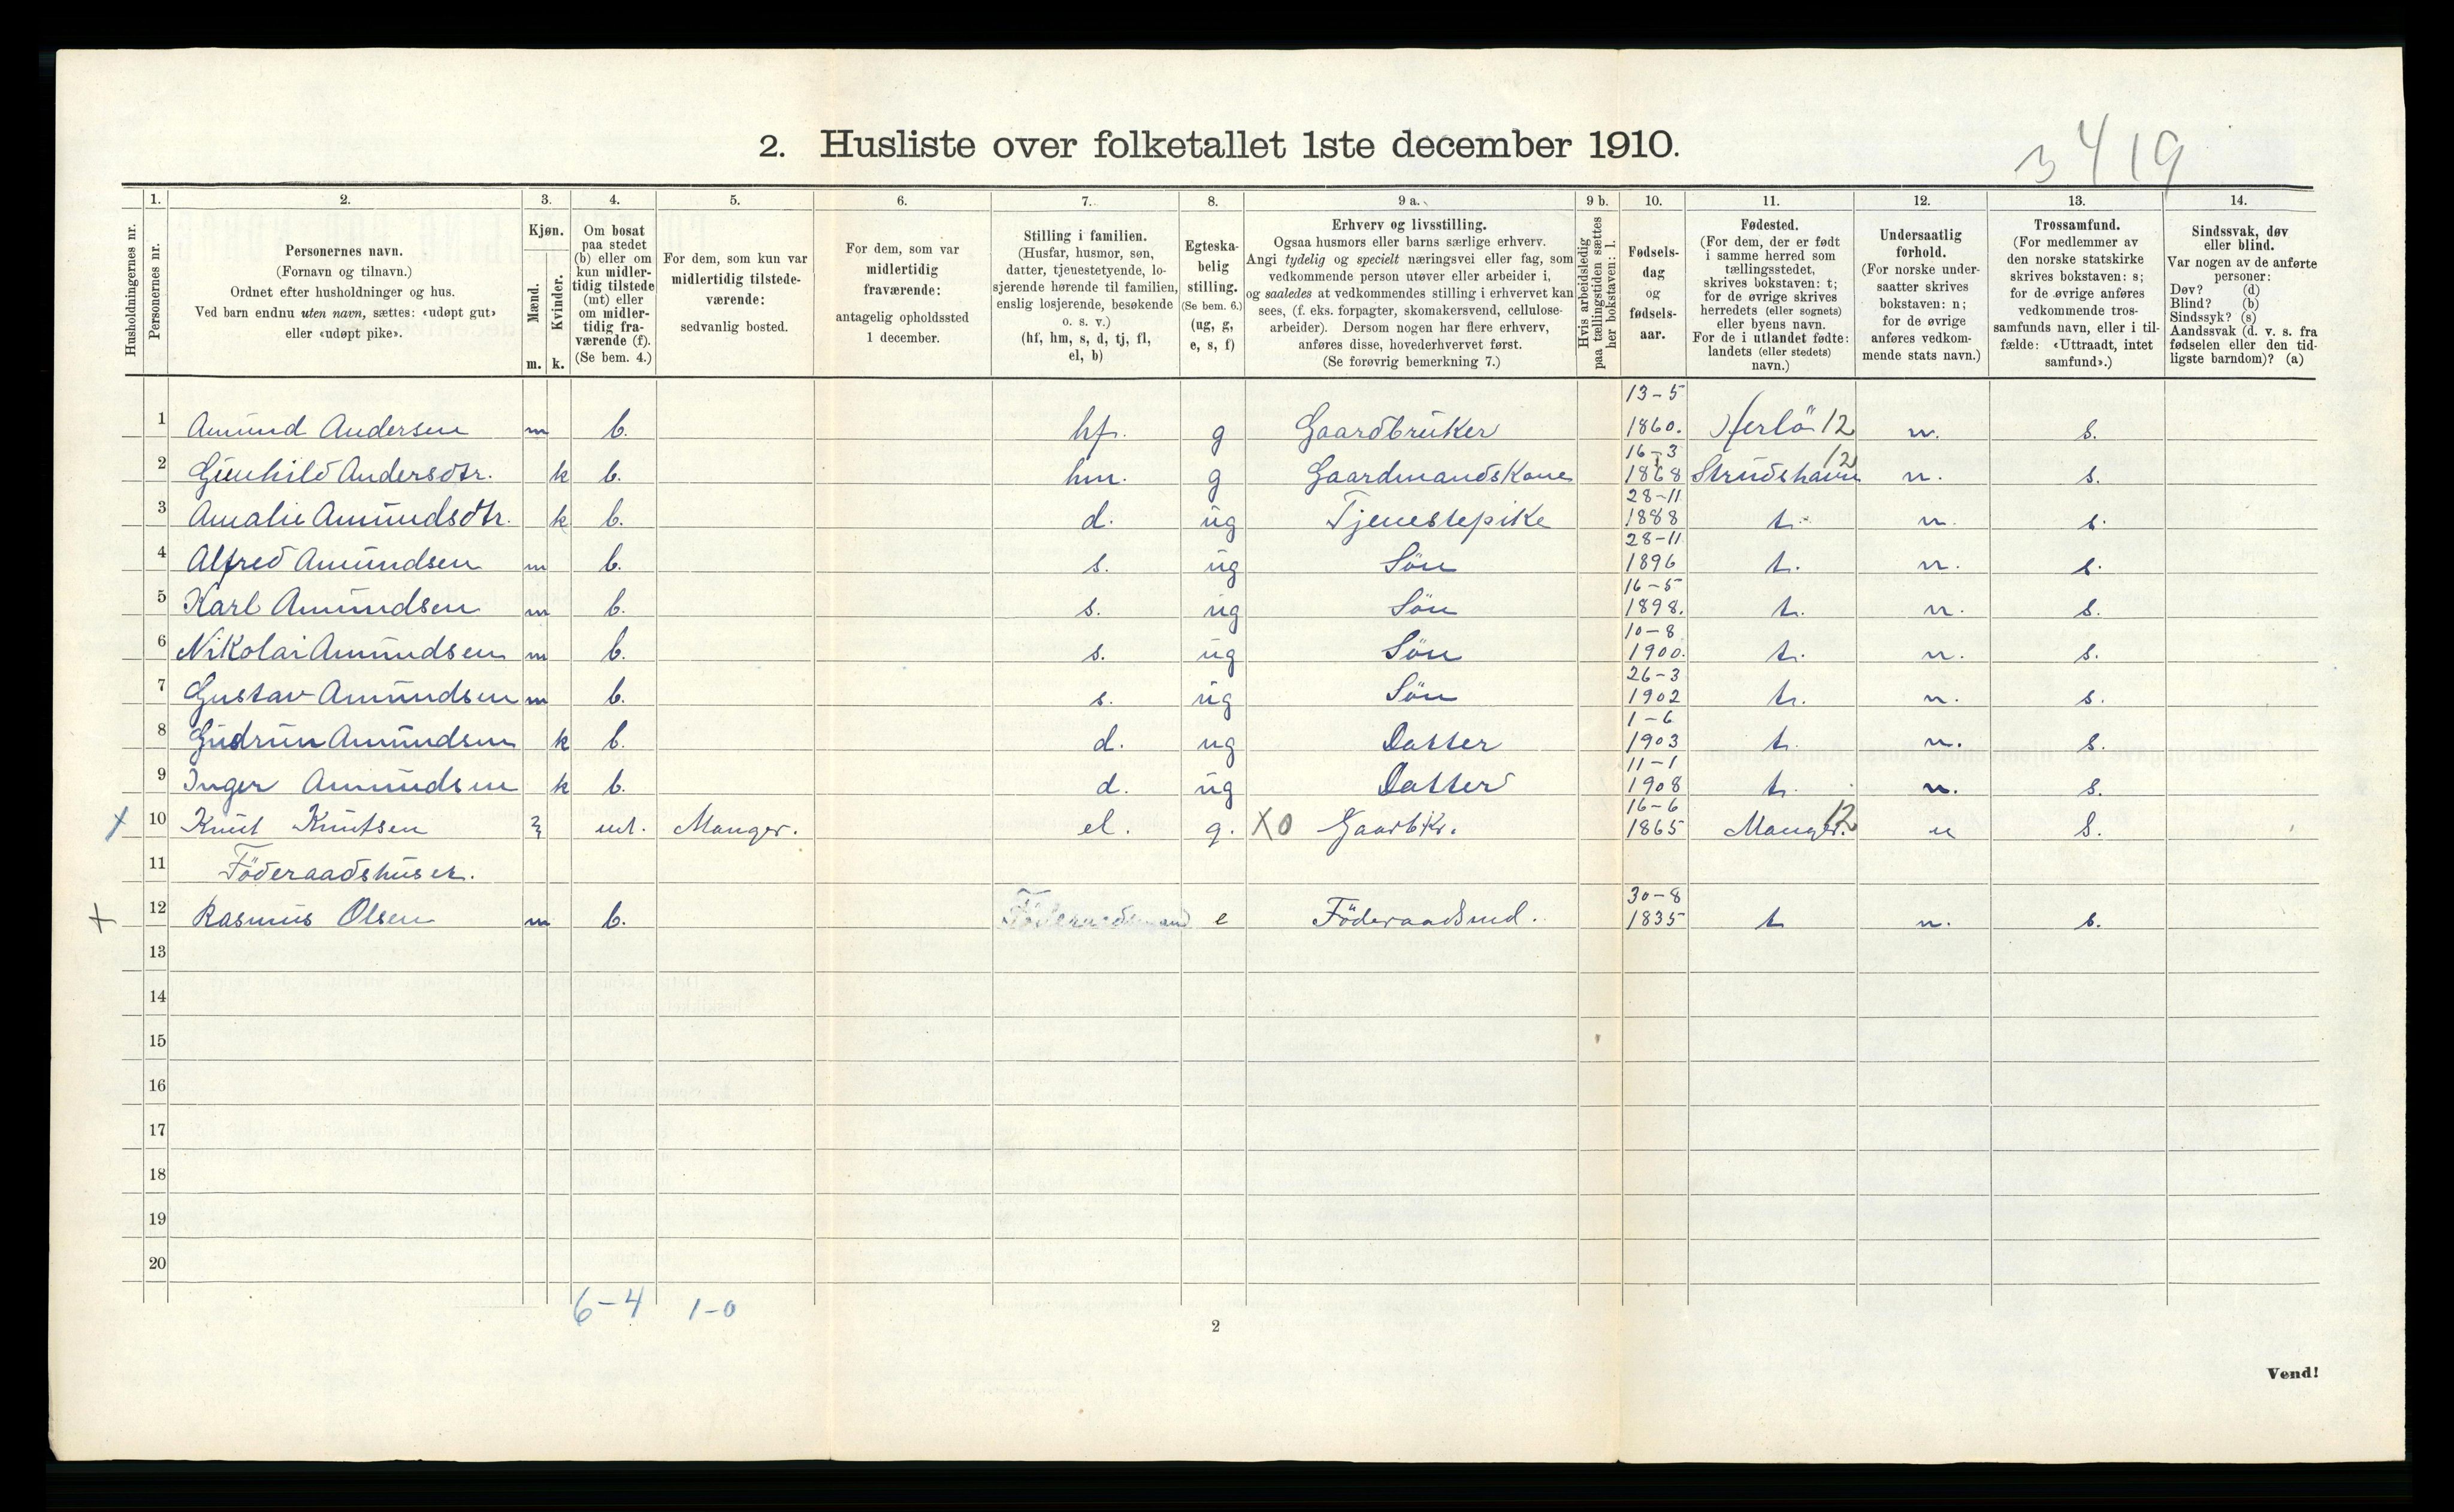 2. Husliste over folketallet 1ste december 1910.
3419
Husholdningernes nr.
1. Personernes nr.
2. Personernes navn. (Fornavn og tilnavn.) Ordnet efter husholdninger og hus. Ved barn endnu uten navn, sættes: «udøpt gut» eller «udøpt pike».
3. Kjøn. Mænd. m. Kvinder. k.
4. Om bosat paa stedet (b) eller om kun midlertidig tilstede (mt) eller om midlertidig fraværende (f). (Se bem. 4.)
5. For dem, som kun var midlertidig tilstedeværende: sedvanlig bosted.
6. For dem, som var midlertidig fraværende: antagelig opholdssted 1 december.
7. Stilling i familien. (Husfar, husmor, søn, datter, tjenestetyende, losjerende hørende til familien, enslig losjerende, besøkende o. s. v.) (hf, hm, s, d, tj, fl, el, b)
8. Egteskabelig stilling. (Se bem. 6.) (ug, g, e, s, f)
9 a. Erhverv og livsstilling. Ogsaa husmors eller barns særlige erhverv. Angi tydelig og specielt næringsvei eller fag, som vedkommende person utøver eller arbeider i, og saaledes at vedkommendes stilling i erhvervet kan sees, (f. eks. forpagter, skomakersvend, cellulosearbeider). Dersom nogen har flere erhverv, anføres disse, hovederhvervet først. (Se forøvrig bemerkning 7.)
9 b. Hvis arbeidsledig paa tællingstiden sættes her bokstaven: l.
10. Fødselsdag og fødselsaar.
11. Fødested. (For dem, der er født i samme herred som tællingsstedet, skrives bokstaven: t; for de øvrige skrives herredets (eller sognets) eller byens navn. For de i utlandet fødte: landets (eller stedets) navn.)
12. Undersaatlig forhold. (For norske undersaatter skrives bokstaven: n; for de øvrige anføres vedkommende stats navn.)
13. Trossamfund. (For medlemmer av den norske statskirke skrives bokstaven: s; for de øvrige anføres vedkommende trossamfunds navn, eller i tilfælde: «Uttraadt, intet samfund».)
14. Sindssvak, døv eller blind. Var nogen av de anførte personer: Døv? (d) Blind? (b) Sindssyk? (s) Aandssvak (d. v. s. fra fødselen eller den tidligste barndom)? (a)
1 Amund Andersen m b. hf. g Gaardbruker 13-5 1860. Herlö 12 n. s.
2 Gunhild Andersdtr. k b. hm. g Gaardmandskone 16-3 1868 Strudshavn 12 n. s.
3 Amalie Amundsdtr. k b. d. ug Tjenestepike 28-11 1888 t. n. s.
4 Alfred Amundsen m b. s. ug Sön 28-11 1896 t. n. s.
5 Karl Amundsen m b. s. ug Sön 16-5 1898. t. n. s.
6 Nikolai Amundsen m b. s. ug Sön 10-8 1900. t. n. s.
7 Gustav Amundsen m b. s. ug Sön 26-3 1902 t. n. s.
8 Gudrun Amundsen k b. d. ug Datter 1-6 1903 t. n. s.
9 Inger Amundsen k b. d. ug Datter 11-1 1908 t. n. s.
x 10 Knut Knutsen mt. Manger. el. g. X0 Gaardbr. 16-6 1865 Manger. 12 n S.
11 Föderaadshuset.
+ 12 Rasmus Olsen m b. Föderaadsmand e Föderaadsmd. 30-8 1835 t n. s.
13
14
15
16
17
18
19
20
6-4 1-0
2
Vend!